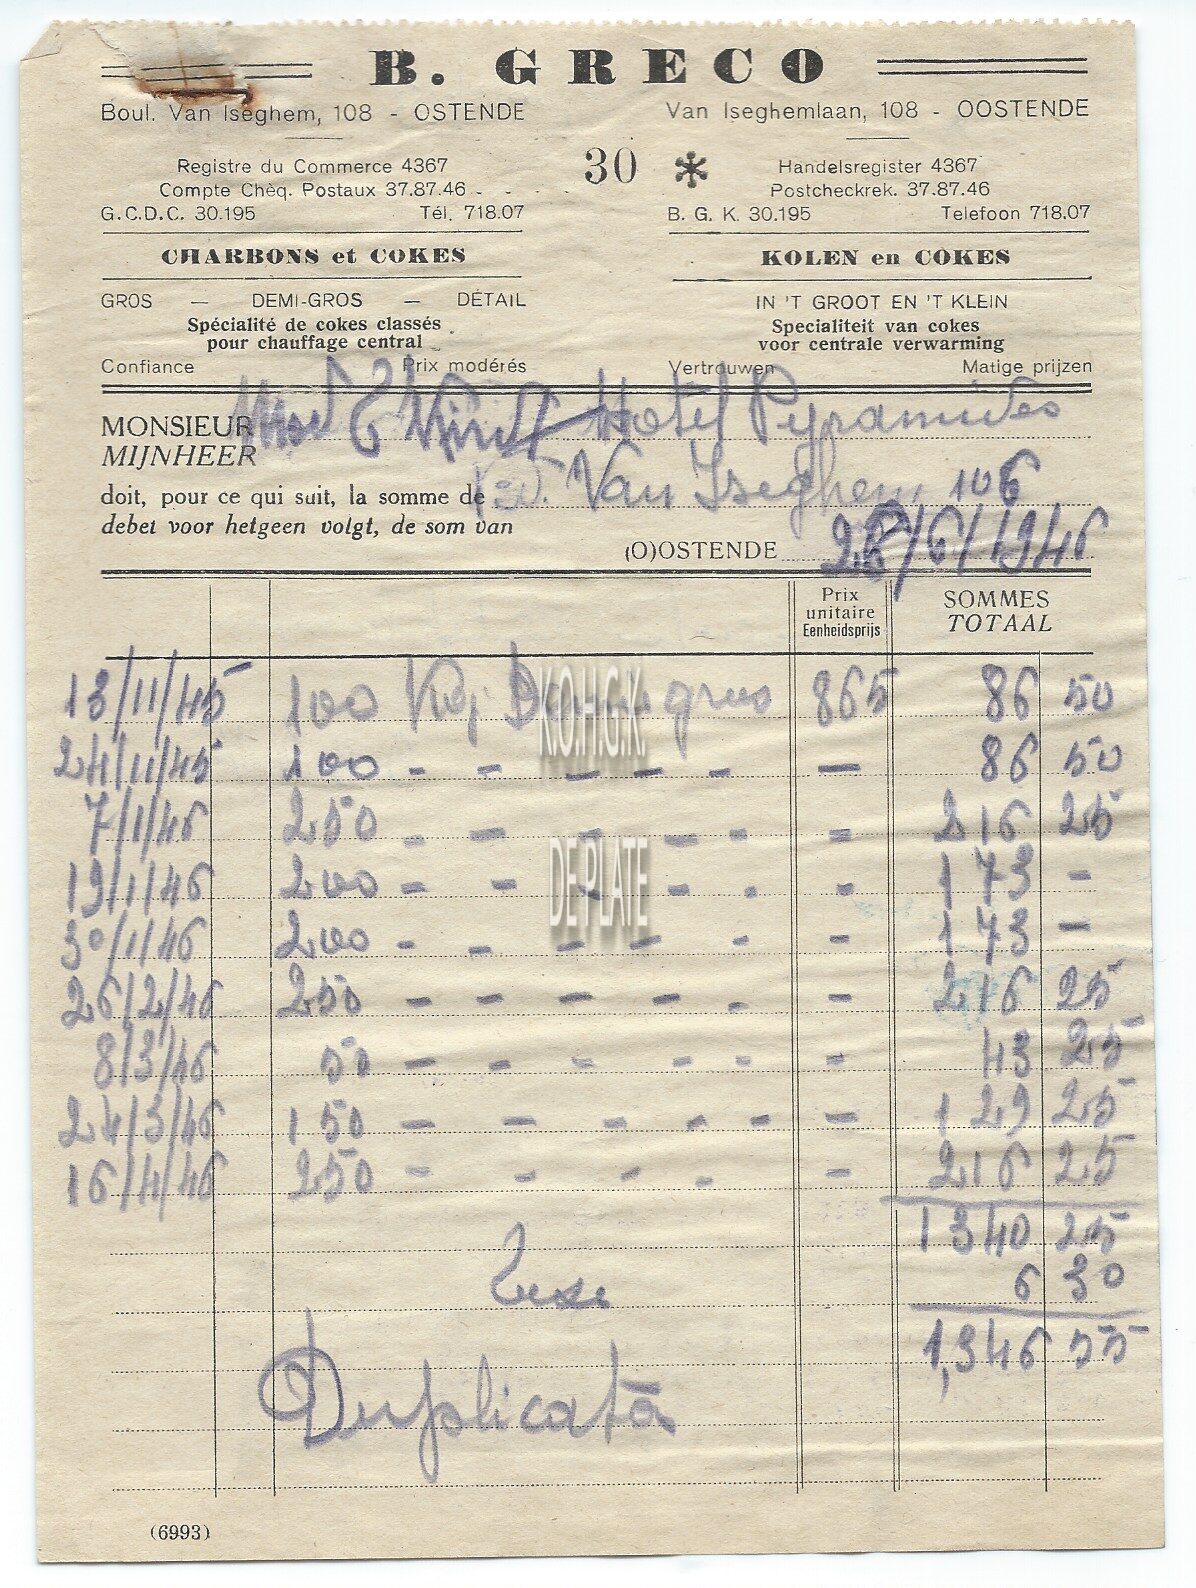 B. GRECO
Boul. Van Iseghem, 108 - OSTENDE
Van Iseghemlaan, 108 - OOSTENDE
30 *
Registre du Commerce 4367
Compte Chèq. Postaux 37.87.46
G.C.D.C. 30.195 Tél. 718.07
Handelsregister 4367
Postcheckrek. 37.87.46
B. G. K. 30.195 Telefoon 718.07
CHARBONS et COKES
KOLEN en COKES
GROS — DEMI-GROS — DÉTAIL
Spécialité de cokes classés
pour chauffage central
Confiance Prix modérés
IN 'T GROOT EN 'T KLEIN
Specialiteit van cokes
voor centrale verwarming
Vertrouwen Matige prijzen
MONSIEUR Hotel Pyramides
MIJNHEER
doit, pour ce qui suit, la somme de Van Iseghem 106
debet voor hetgeen volgt, de som van
(O)OSTENDE 26/6/1946
Prix unitaire Eenheidsprijs
SOMMES TOTAAL
13/11/45 100 Kg 865 86 50
24/11/45 100 - - - - - — 86 50
7/1/46 250 - - - - - = 216 25
19/1/46 200 - - - - - = 173 -
30/1/46 200 - - - - - - 173 -
26/2/46 250 - - - - - - 216 25
8/3/46 50 - - - - - = 43 25
24/3/46 150 - - - - - — 129 25
16/4/46 250 - - - - - 216 25
1340 25
Taxe 6 30
1,346 55
Duplicata
K.O.H.G.K.
DE PLATE
(6993)